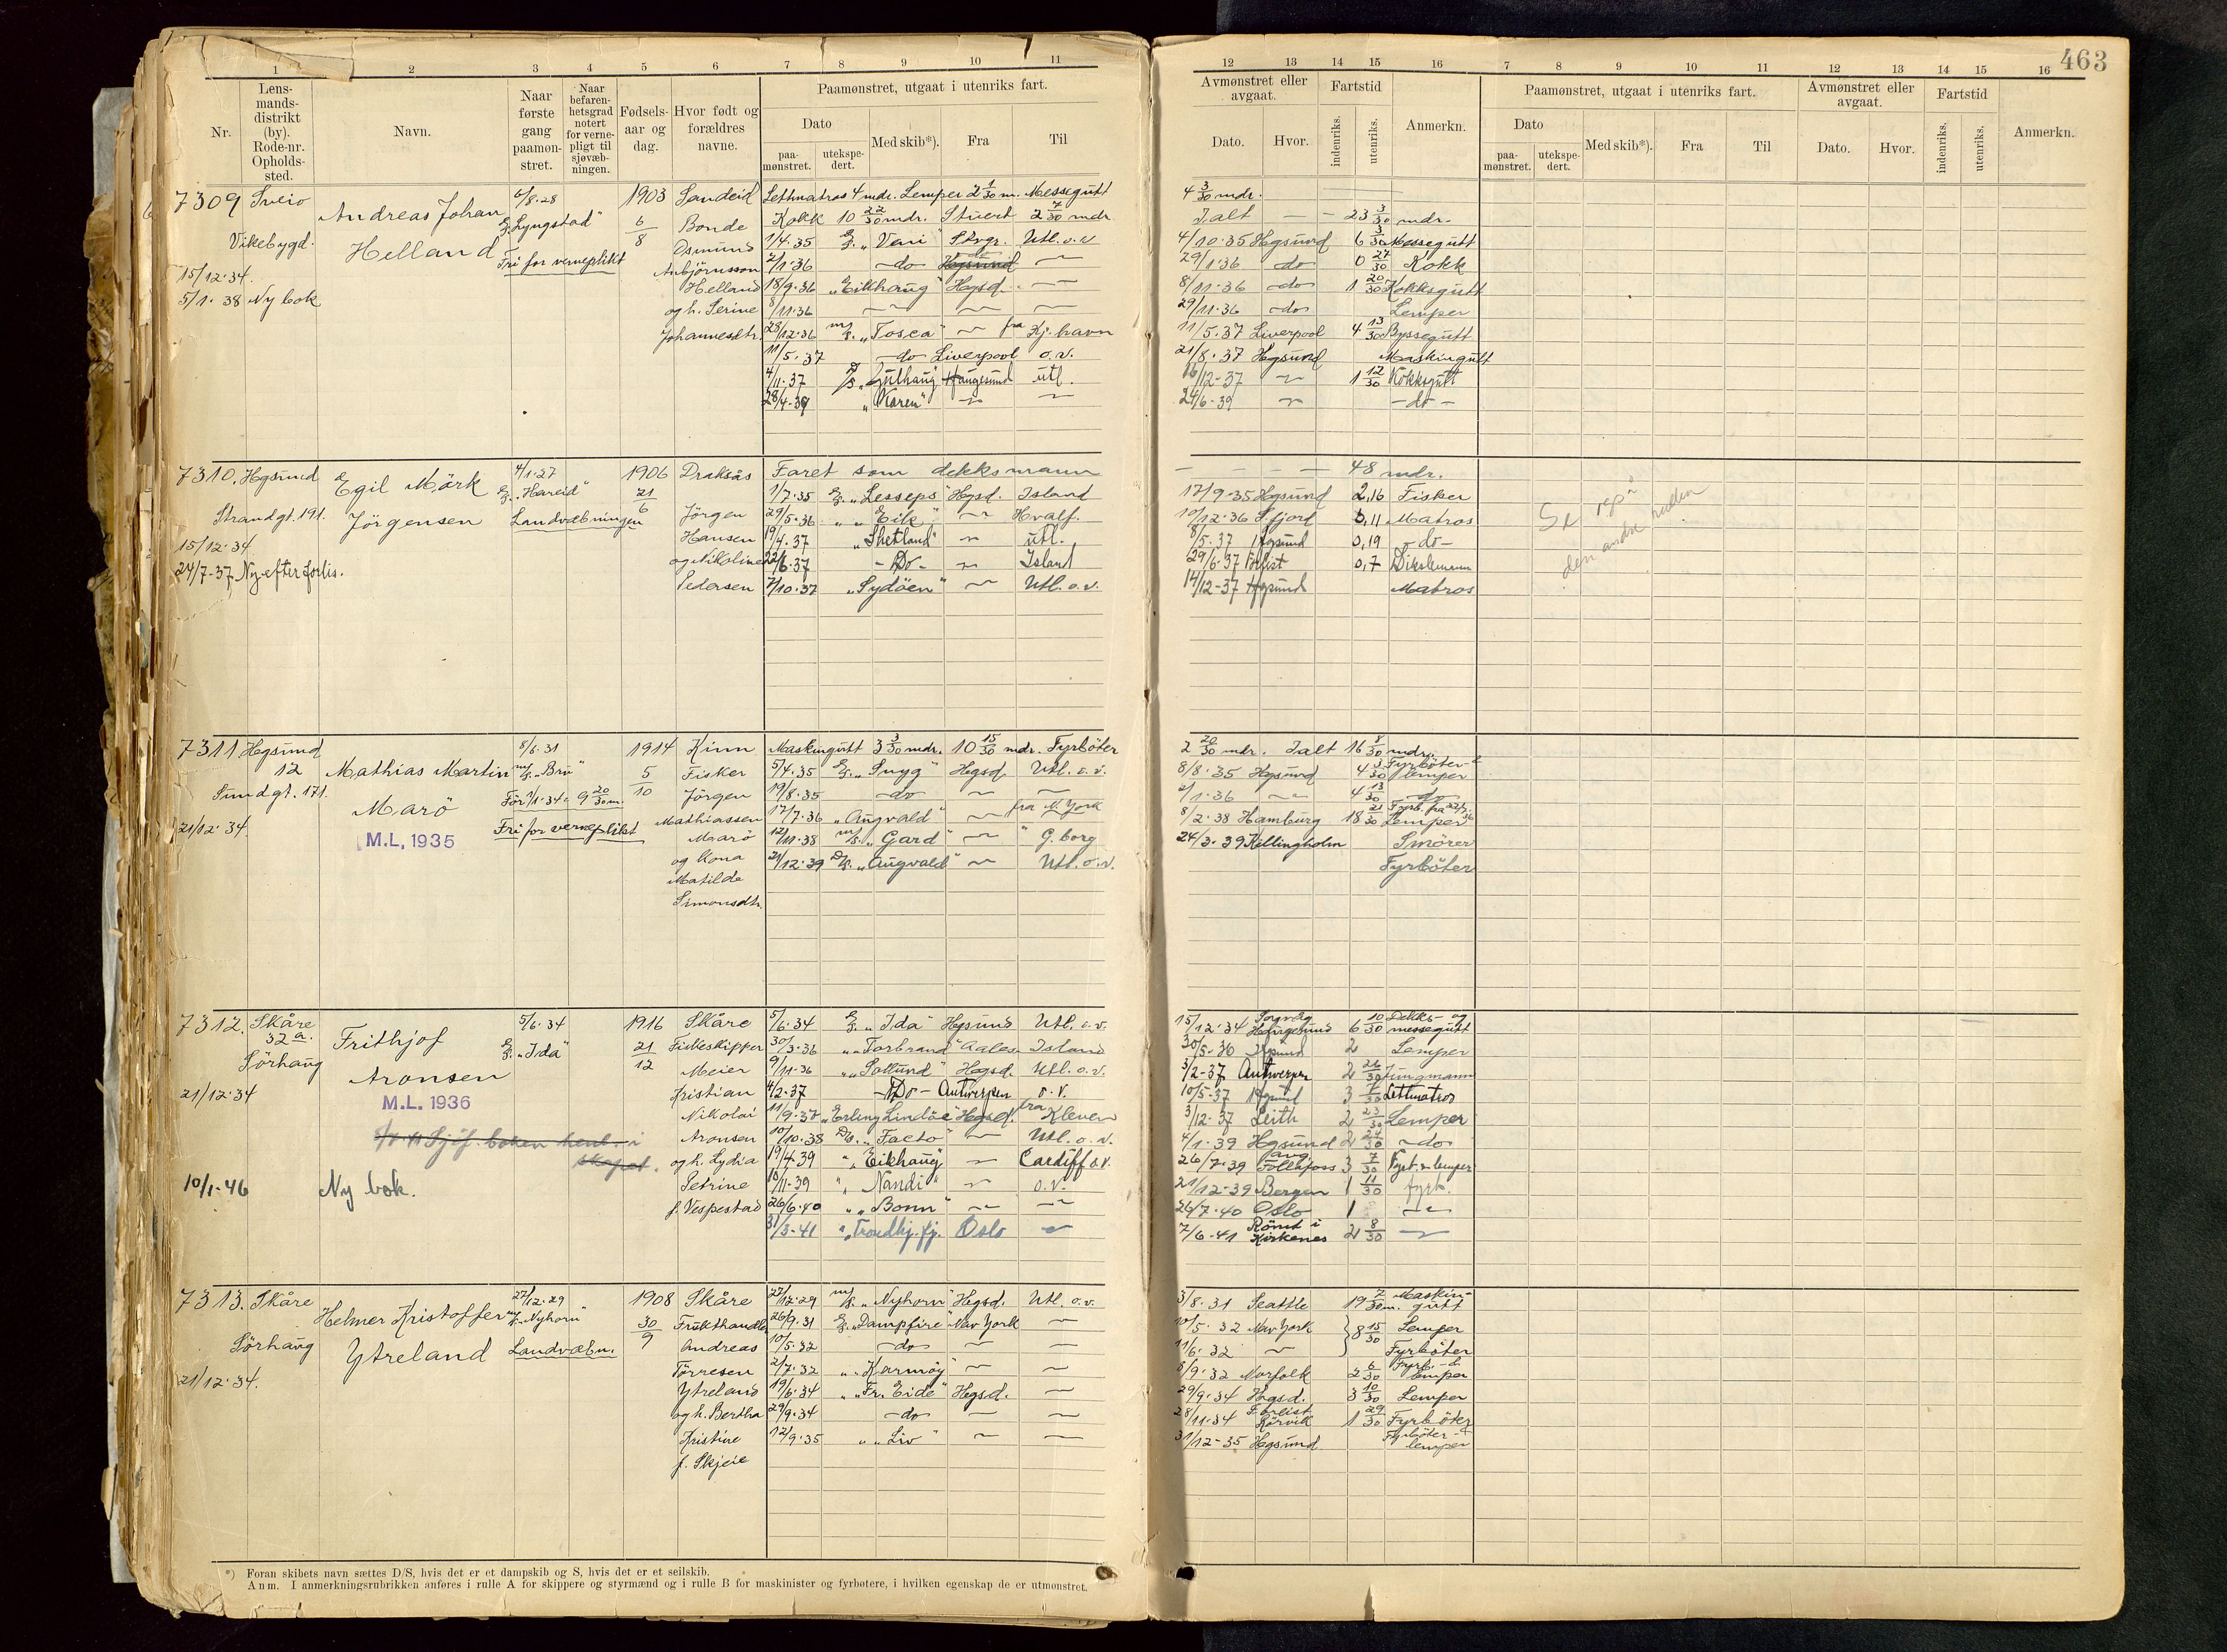 463
1 2 3 4 5 6 7 8 9 10 11
12 13 14 15 16 7 8 9 10 11 12 13 14 15 16
Nr.
Lens-
mands-
distrikt
(by).
Rode-nr.
Opholds-
sted.
Navn.
Naar
første
gang
paamøn-
stret.
Naar
befaren-
hetsgrad
notert
for verne-
pligt til
sjøvæb-
ningen.
Fødsels-
aar og
dag.
Hvor født og
forældres
navne.
Paamønstret, utgaat i utenriks fart.
Dato
paa-
mønstret.
utekspe-
dert.
Med skib*).
Fra
Til
Avmønstret eller
avgaat.
Dato.
Hvor.
Fartstid
indenriks.
utenriks.
Anmerkn.
Paamønstret, utgaat i utenriks fart.
Dato
paa-
mønstret.
utekspe-
dert.
Med skib*).
Fra
Til
Avmønstret eller
avgaat.
Dato.
Hvor.
Fartstid
indenriks.
utenriks.
Anmerkn.
7309 Sveio
Vikebygd.
15/12·34.
5/1·38 Ny bok
Andreas Johan
Helland
6/8·28
"Lyngstad"
Fri for verneplikt
1903
6/8
Sandeid
Bonde
Osmund
Anbjörnsson
Helland
og h. Serine
Johannesdtr.
Lettmatros 4 mdr. Lemper 2 1/30 m. Messegutt 4 3/30 mdr.
Kokk 10 22/30 mdr. Stuert 2 7/30 mdr Ialt — 23 3/30 mdr.
1/4·35 "Veni" Stvgr. Utl. o.v 4/10·35 Hgsund 6 3/30 Messegutt
2/1·36 —do— 29/1·36 do 0 27/30 Kokk
18/9·36 "Eikhaug" Hgsd. — 8/11·36 —do— 1 20/30 Kokksgutt
8/11·36 — — — 29/11·36 —do— Lemper
28/12·36 m/s. "Tosca" — fra Kj.havn 11/5·37 Liverpool 4 13/30 Byssegutt
11/5·37 —do— Liverpool o.v. 21/8·37 Hgsund Maskingutt
4/11·37 D/S "Gulhaug" Haugesund utl. 16/12-37 — 1 12/30 Kokksgutt
28/4·39 "Karen" — — 24/6-39 — —do—
7310. Hgsund
Strandgt. 191.
15/12·34
24/7-37. Ny efter forlis.
Egil Mörk
Jörgensen
4/1·27
"Hareid"
Landvæbningen
1906
21/6
Jörgen
Hansen
og Nikoline
Pedersen
Faret som dekksmann — — — — 48 mdr.
1/7·35 "Lesseps" Hgsd. Island 17/9·35 Hgsund 2,16 Fisker
29/5·36 " "Eik" — Hvalf. 10/12·36 S.fjord Matros
19/4·37 "Shetland" — utl. 8/5·37 Hgsund 0,19 —do—
22/6·37 —Do— — Island 29/6·37 Forlist 0,7 Dikslmann
7/10·37 "Sydöen" — Utl. o.v. 14/12-37 Hgsund Matros
den andre rullen
7311 Hgsund
12
Sundgt. 171.
21/12·34.
Mathias Martin
Marö
M.L, 1935
8/6·31
m/s. "Bru"
För 1/1·34: 9 20/30 m.
Fri for verneplikt
1914
5/10
Kinn
Fisker
Jörgen
Mathiassen
Maarö
og Kona
Matilde
Simonsdtr.
Maskingutt 3 3/30 mdr. 10 15/30 mdr. Fyrböter 2 20/30 mdr. Ialt 16 8/30 mdr.
5/4·35 "Snyg" Hgsd. Utl. o.v. 8/8·35 Hgsund 4 3/30 Fyrböter- & lemper
19/8·35 —do— — — 2/1·36 — 4 13/30 —do—
17/7·36 "Augvald" — fra N.York 8/2·38 Hamburg 18 21/30 Lemper
12/11·38 m/s. "Gard" — G.borg 24/3·39 Killingholm Smörer
21/12·39 D/S. "Augvald" — Utl. o.v. Fyrböter
7312. Skåre
32a.
Sörhaug
21/12·34
10/1-46
Frithjof
Aronsen
M.L. 1936
Sjöf. boken hent. i
skapet.
Ny bok.
5/6·34
"Ida"
1916
21/12
Skåre
Fiskeskipper
Meier
Kristian
Nikolai
Aronsen
og h. Lydia
Petrine
f. Vespestad
5/6·34 "Ida" Hgsund Utl. o.v. 15/12·34 Haugesund 6 10/30 Dekks- og messegutt
30/3·36 " "Torbrand" Aales. Island 30/5-36 Hgsund 2 Lemper
9/11·36 " "Sollund" Hgsd. Utl. o.v. 3/2-37 Antwerpen 2 26/30 Jungmann
4/2·37 —Do— Antwerpen o.v. 10/5-37 Hgsund 3 7/30 Lettmatros
11/9·37 "Erling Lindöe" Hgsd. fra Kleven 3/12·37 Leith 2 23/30 Lemper
10/10·38 D/S. "Facto" — Utl. o.v. 4/1·39 Hgsund 2 24/30 —do—
19/4·39 " "Eikhaug" — Cardiff o.v. 26/7·39 Follafoss 3 7/30 Fyrb. & lemper
10/11·39 " "Nandi" — o.v. 21/12·39 Bergen 1 11/30 fyrb.
26/6·40 " "Bonn" — — 26/7·40 Oslo 1 —
31/3-41 " Trondhj.fj. Oslo — 7/6-41 Römt i Kirkenes 2 8/30 —
7313. Skåre
Sörhaug
21/12·34.
Helmer Kristoffer
Ytreland
27/12·29
m/s. "Nyhorn"
Landvæbn.
1908
30/9
Skåre
Frukthandler
Andreas
Törresen
Ytreland
og h. Bertha
Kristine
f. Skjeie
27/12·29 m/s. "Nyhorn" Hgsd. Utl. o.v. 3/8·31 Seattle 19 7/30 m. Maskin- gutt
26/9·31 "Dampfire" New York — 10/5·32 New York 8 15/30 Lemper
10/5·32 —do— — — 11/6·32 — Fyrböter
2/7·32 " "Karmöy" — — 8/9·32 Norfolk 2 6/30 Fyrb.- & lemper
19/6·34 " "Fr. Eide" Hgsd. — 29/9·34 Hgsd. 3 10/30 Lemper
29/9·34 —do— — — 28/11·34 Forlist Rörvik 1 29/30 Fyrböter
12/9·35 " "Liv" — — 31/12-35 Hgsund Fyrböter- & lemper
*) Foran skibets navn sættes D/S, hvis det er et dampskib og S, hvis det er et seilskib.
Anm. I anmerkningsrubrikken anføres i rulle A for skippere og styrmænd og i rulle B for maskinister og fyrbøtere, i hvilken egenskap de er utmønstret.